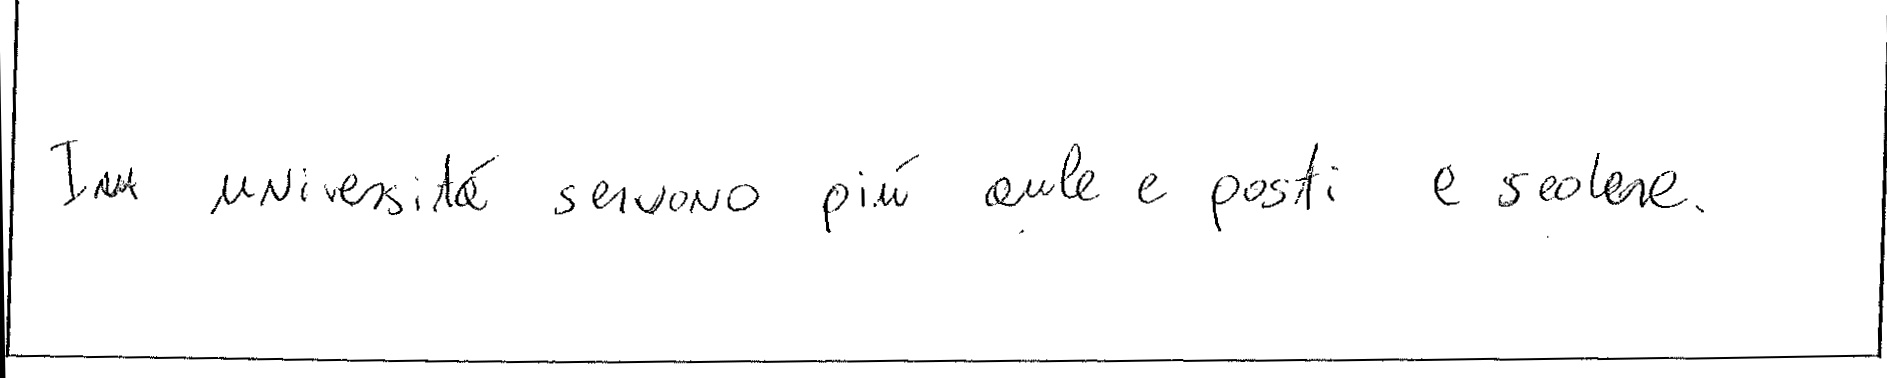 In università servono più aule e posti e sedere.